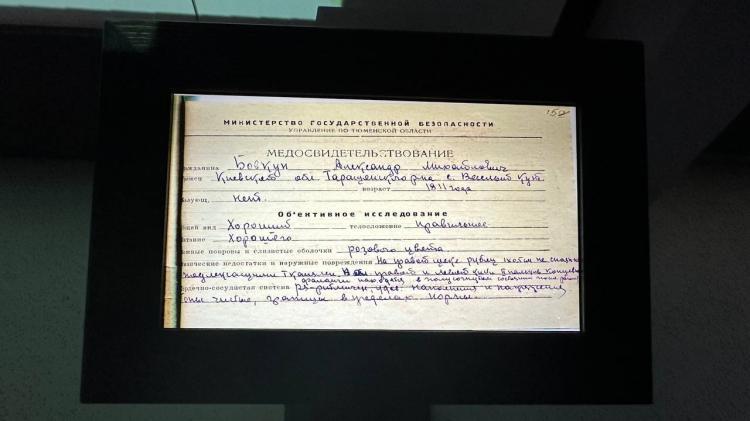 152
МИНИСТЕРСТВО ГОСУДАРСТВЕННОЙ БЕЗОПАСНОСТИ
УПРАВЛЕНИЕ ПО ТЮМЕНСКОЙ ОБЛАСТИ
МЕДОСВИДЕТЕЛЬСТВОВАНИЕ
жданина Бовкун Александр Михайлович
Киевской обл Таращенского с. Веселый Кут
возраст 1811 года
нет.
Объективное исследование
щий вид Хороший телосложение правильное
тание Хорошего
жные покровы и слизистые оболочки розового цвета
ческие недостатки и наружные повреждения На правой щеке рубец
подлежащими тканями. правой и левой кисти
находятся в
рдечно-сосудистая система наполнения и напряжения
оны чистые, границы в пределах нормы.